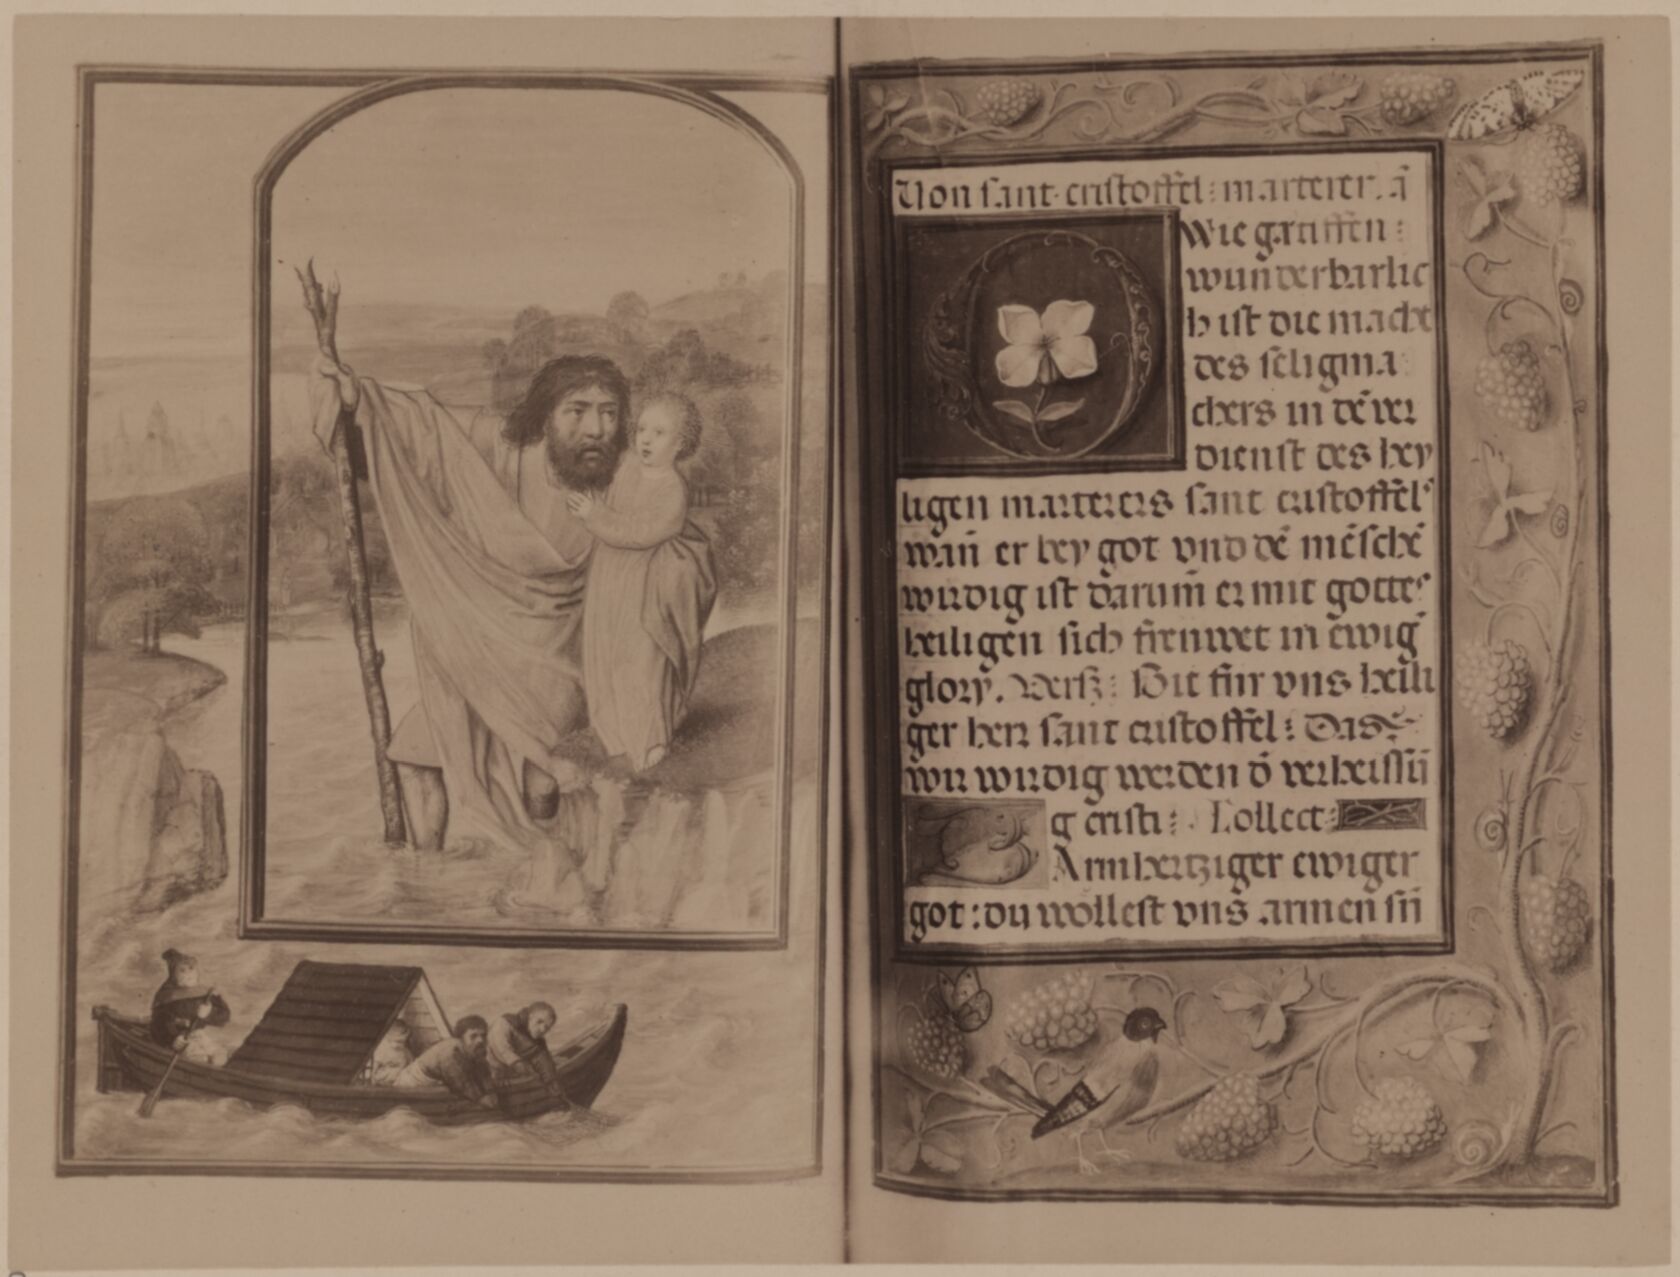 Von sant cristoffel: marterer. ā
O Wie groissen:
wunderbarlic
h ist die macht
des seligma
chers in dē ver
dienst des hey
ligen marterers sant cristoffels
wañ er bey got vnd dē mēschē
wirdig ist darum̄ er mit gottes
heiligen sich frewet in ewig
glory. Verß: Bit für vns heili
ger herr sant cristoffel: Das
wir wirdig werden ō verheissū
g cristi: Collect:
BArmhertziger ewiger
got: du wöllest vns armen sū